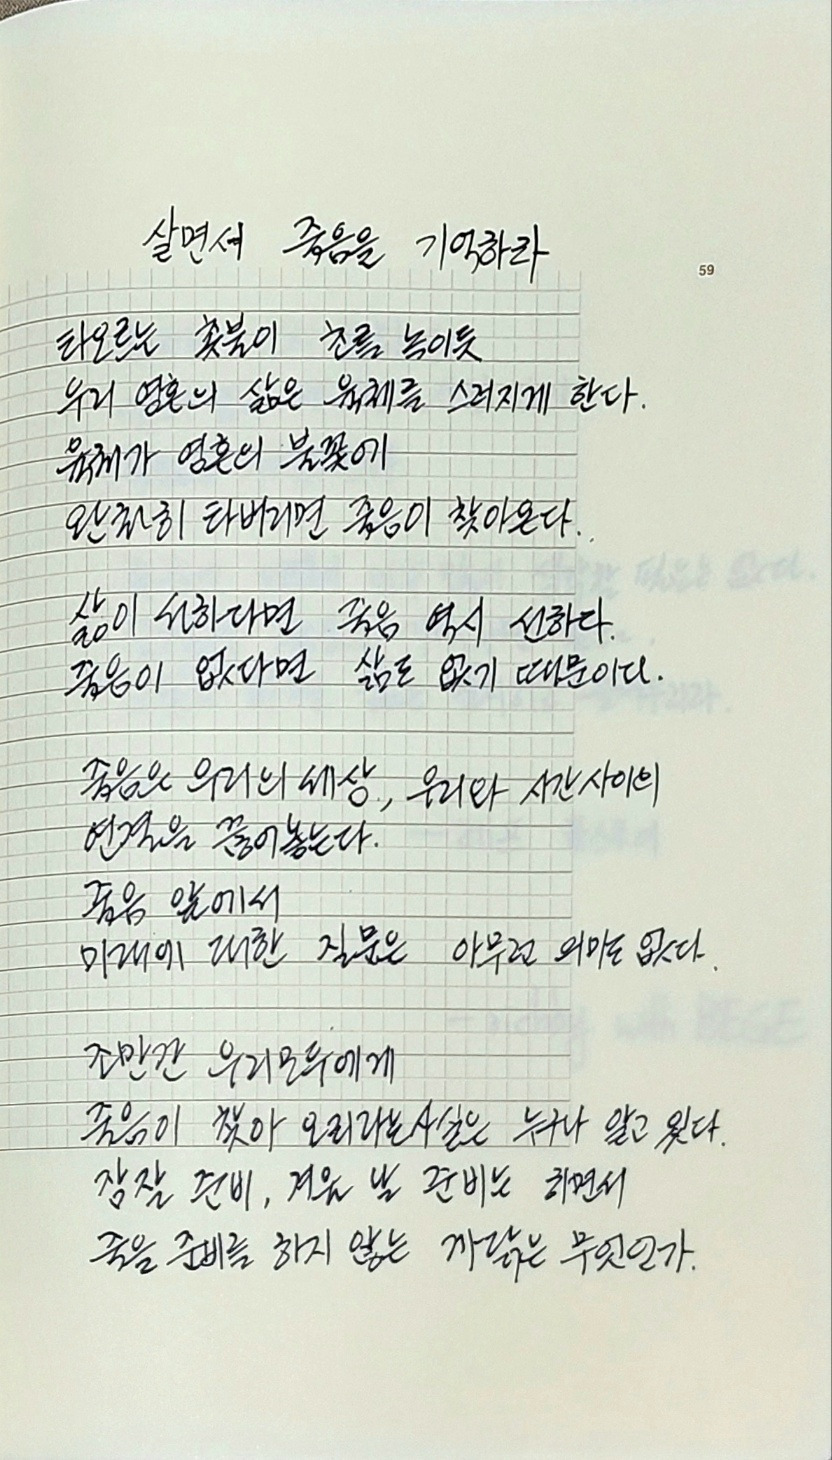 살면서 죽음을 기억하라
59
타오르는 촛불이 초를 녹이듯
우리 영혼의 삶은 육체를 스러지게 한다.
육체가 영혼의 불꽃에
완전히 타버리면 죽음이 찾아온다.
삶이 선하다면 죽음 역시 선하다.
죽음이 없다면 삶도 없기 때문이다.
죽음은 우리의 세상, 우리와 시간 사이의
연결을 끊어놓는다.
죽음 앞에서
미래에 대한 질문은 아무런 의미도 없다.
조만간 우리 모두에게
죽음이 찾아 오리라는 사실은 누구나 알고 있다.
잠잘 준비, 겨울 날 준비는 하면서
죽을 준비를 하지 않는 까닭은 무엇인가.